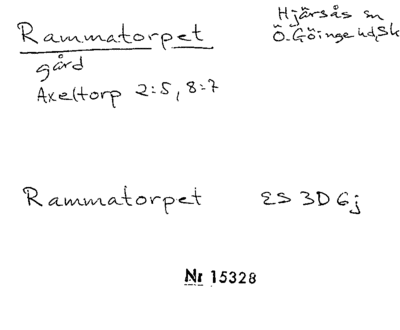 Rammatorpet
Hjärsås sn
Ö. Göinge hd, Sk
gård
Axeltorp 2:5, 8:7
Rammatorpet ES 3D 6j
Nr 15328